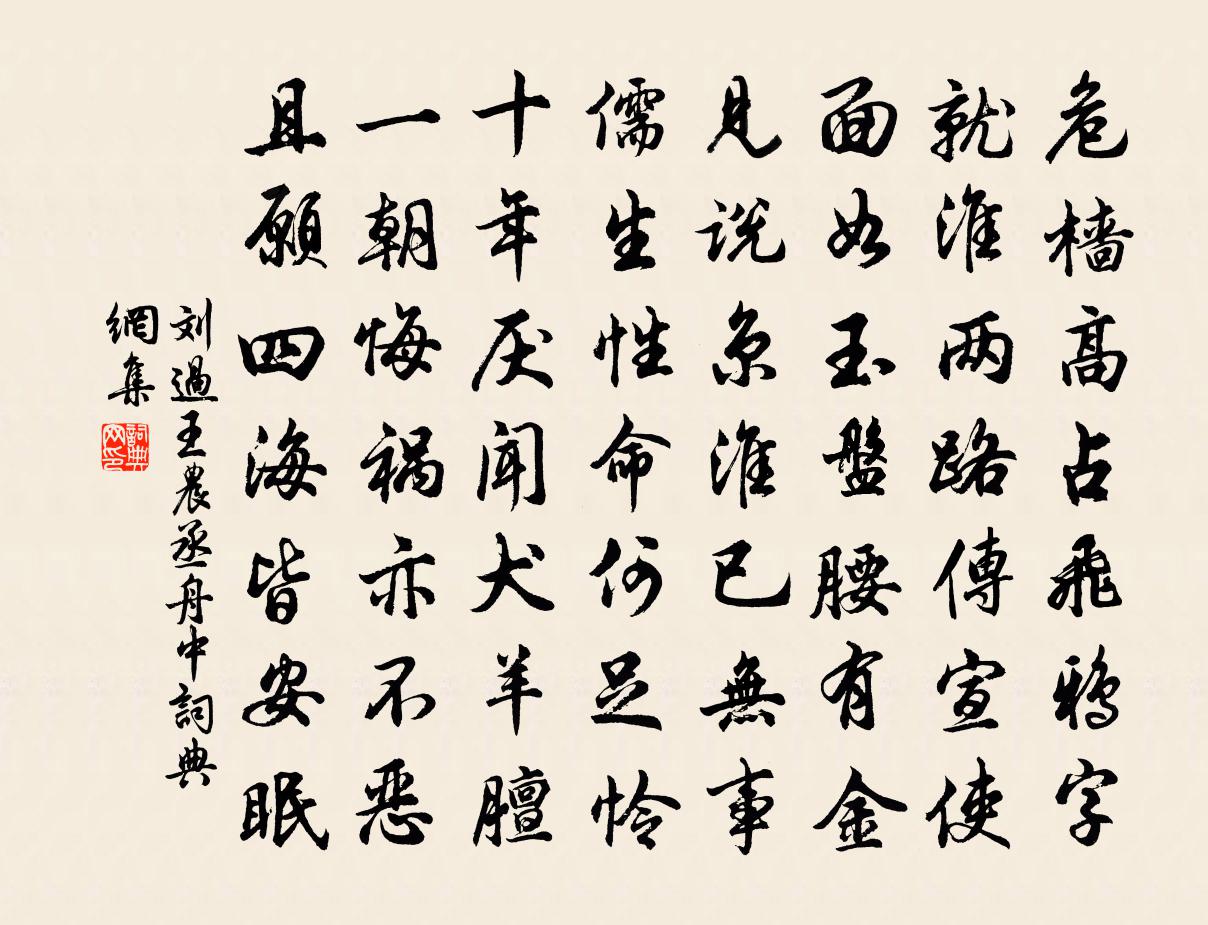 危檣高占飛鴉字
就淮两路傳宣使
面如玉盤腰有金
見说京淮已無事
儒生性命何足怜
十年厌闻犬羊膻
一朝悔祸亦不恶
且願四海皆安眠
刘過王農丞舟中詞典
網集
詞典
网印